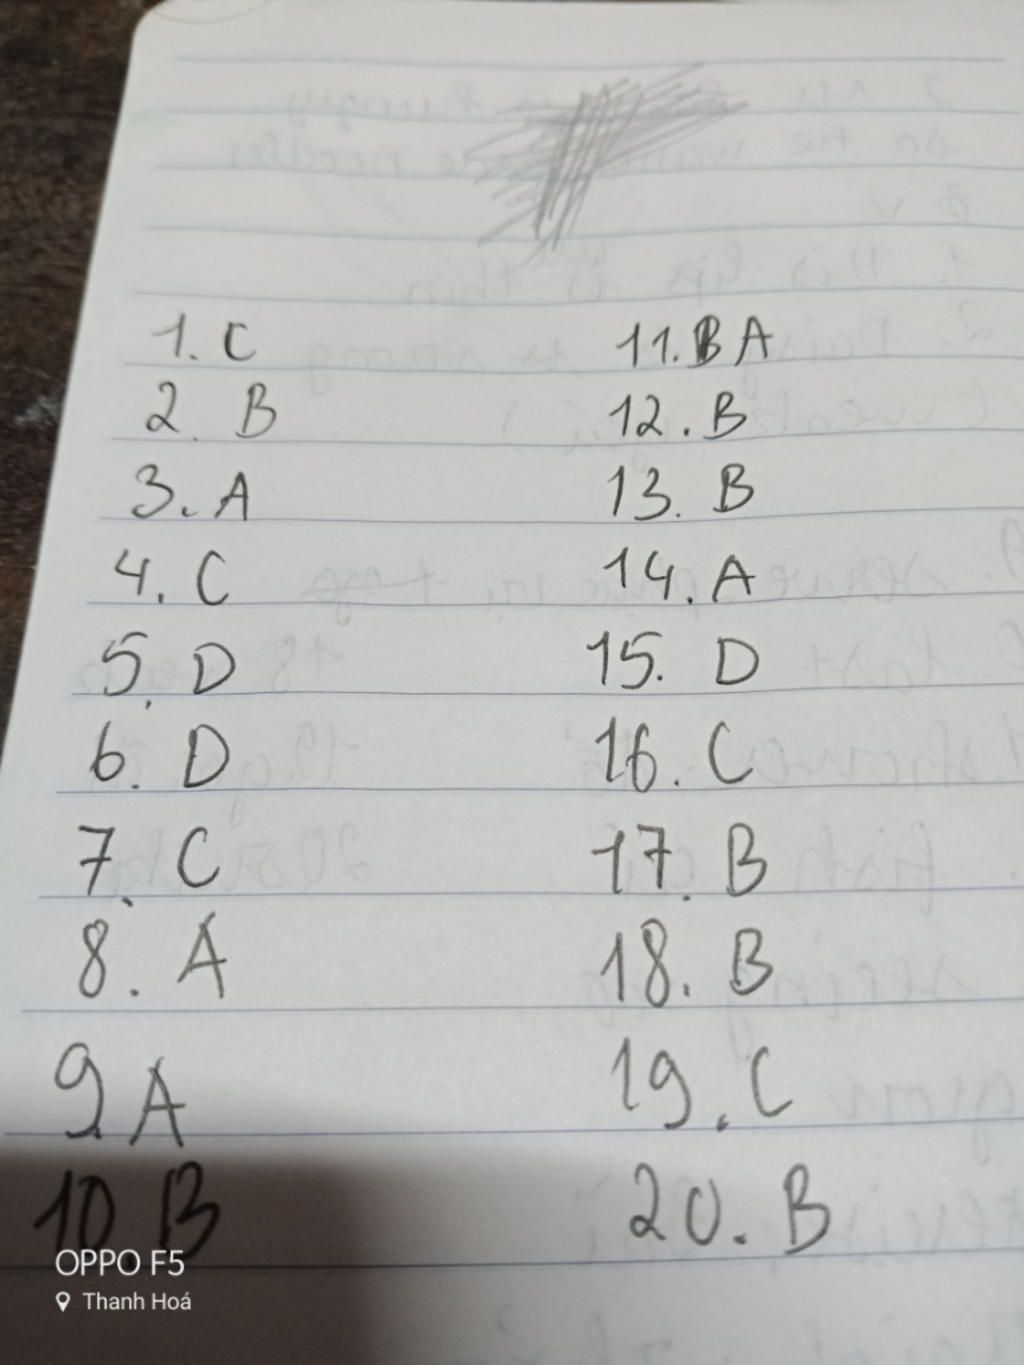 1. C
2. B
3. A
4. C
5. D
6. D
7. C
8. A
9. A
10. B
11. A
12. B
13. B
14. A
15. D
16. C
17. B
18. B
19. C
20. B
OPPO F5
Thanh Hoá